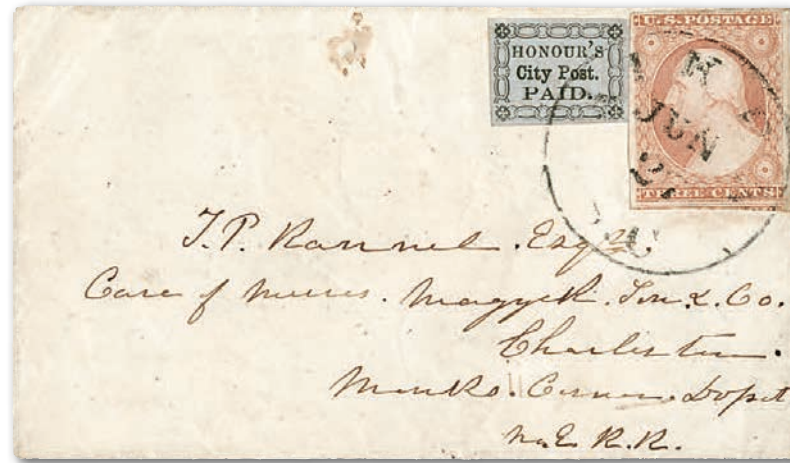 HONOUR'S
City Post.
PAID.
U.S. POSTAGE
THREE CENTS
JUN
T. P. Ravenel. Esqr.
Care of Messrs. Magyck. Son & Co.
Charleston.
Monks. Corner. Depot
N. E. R. R.